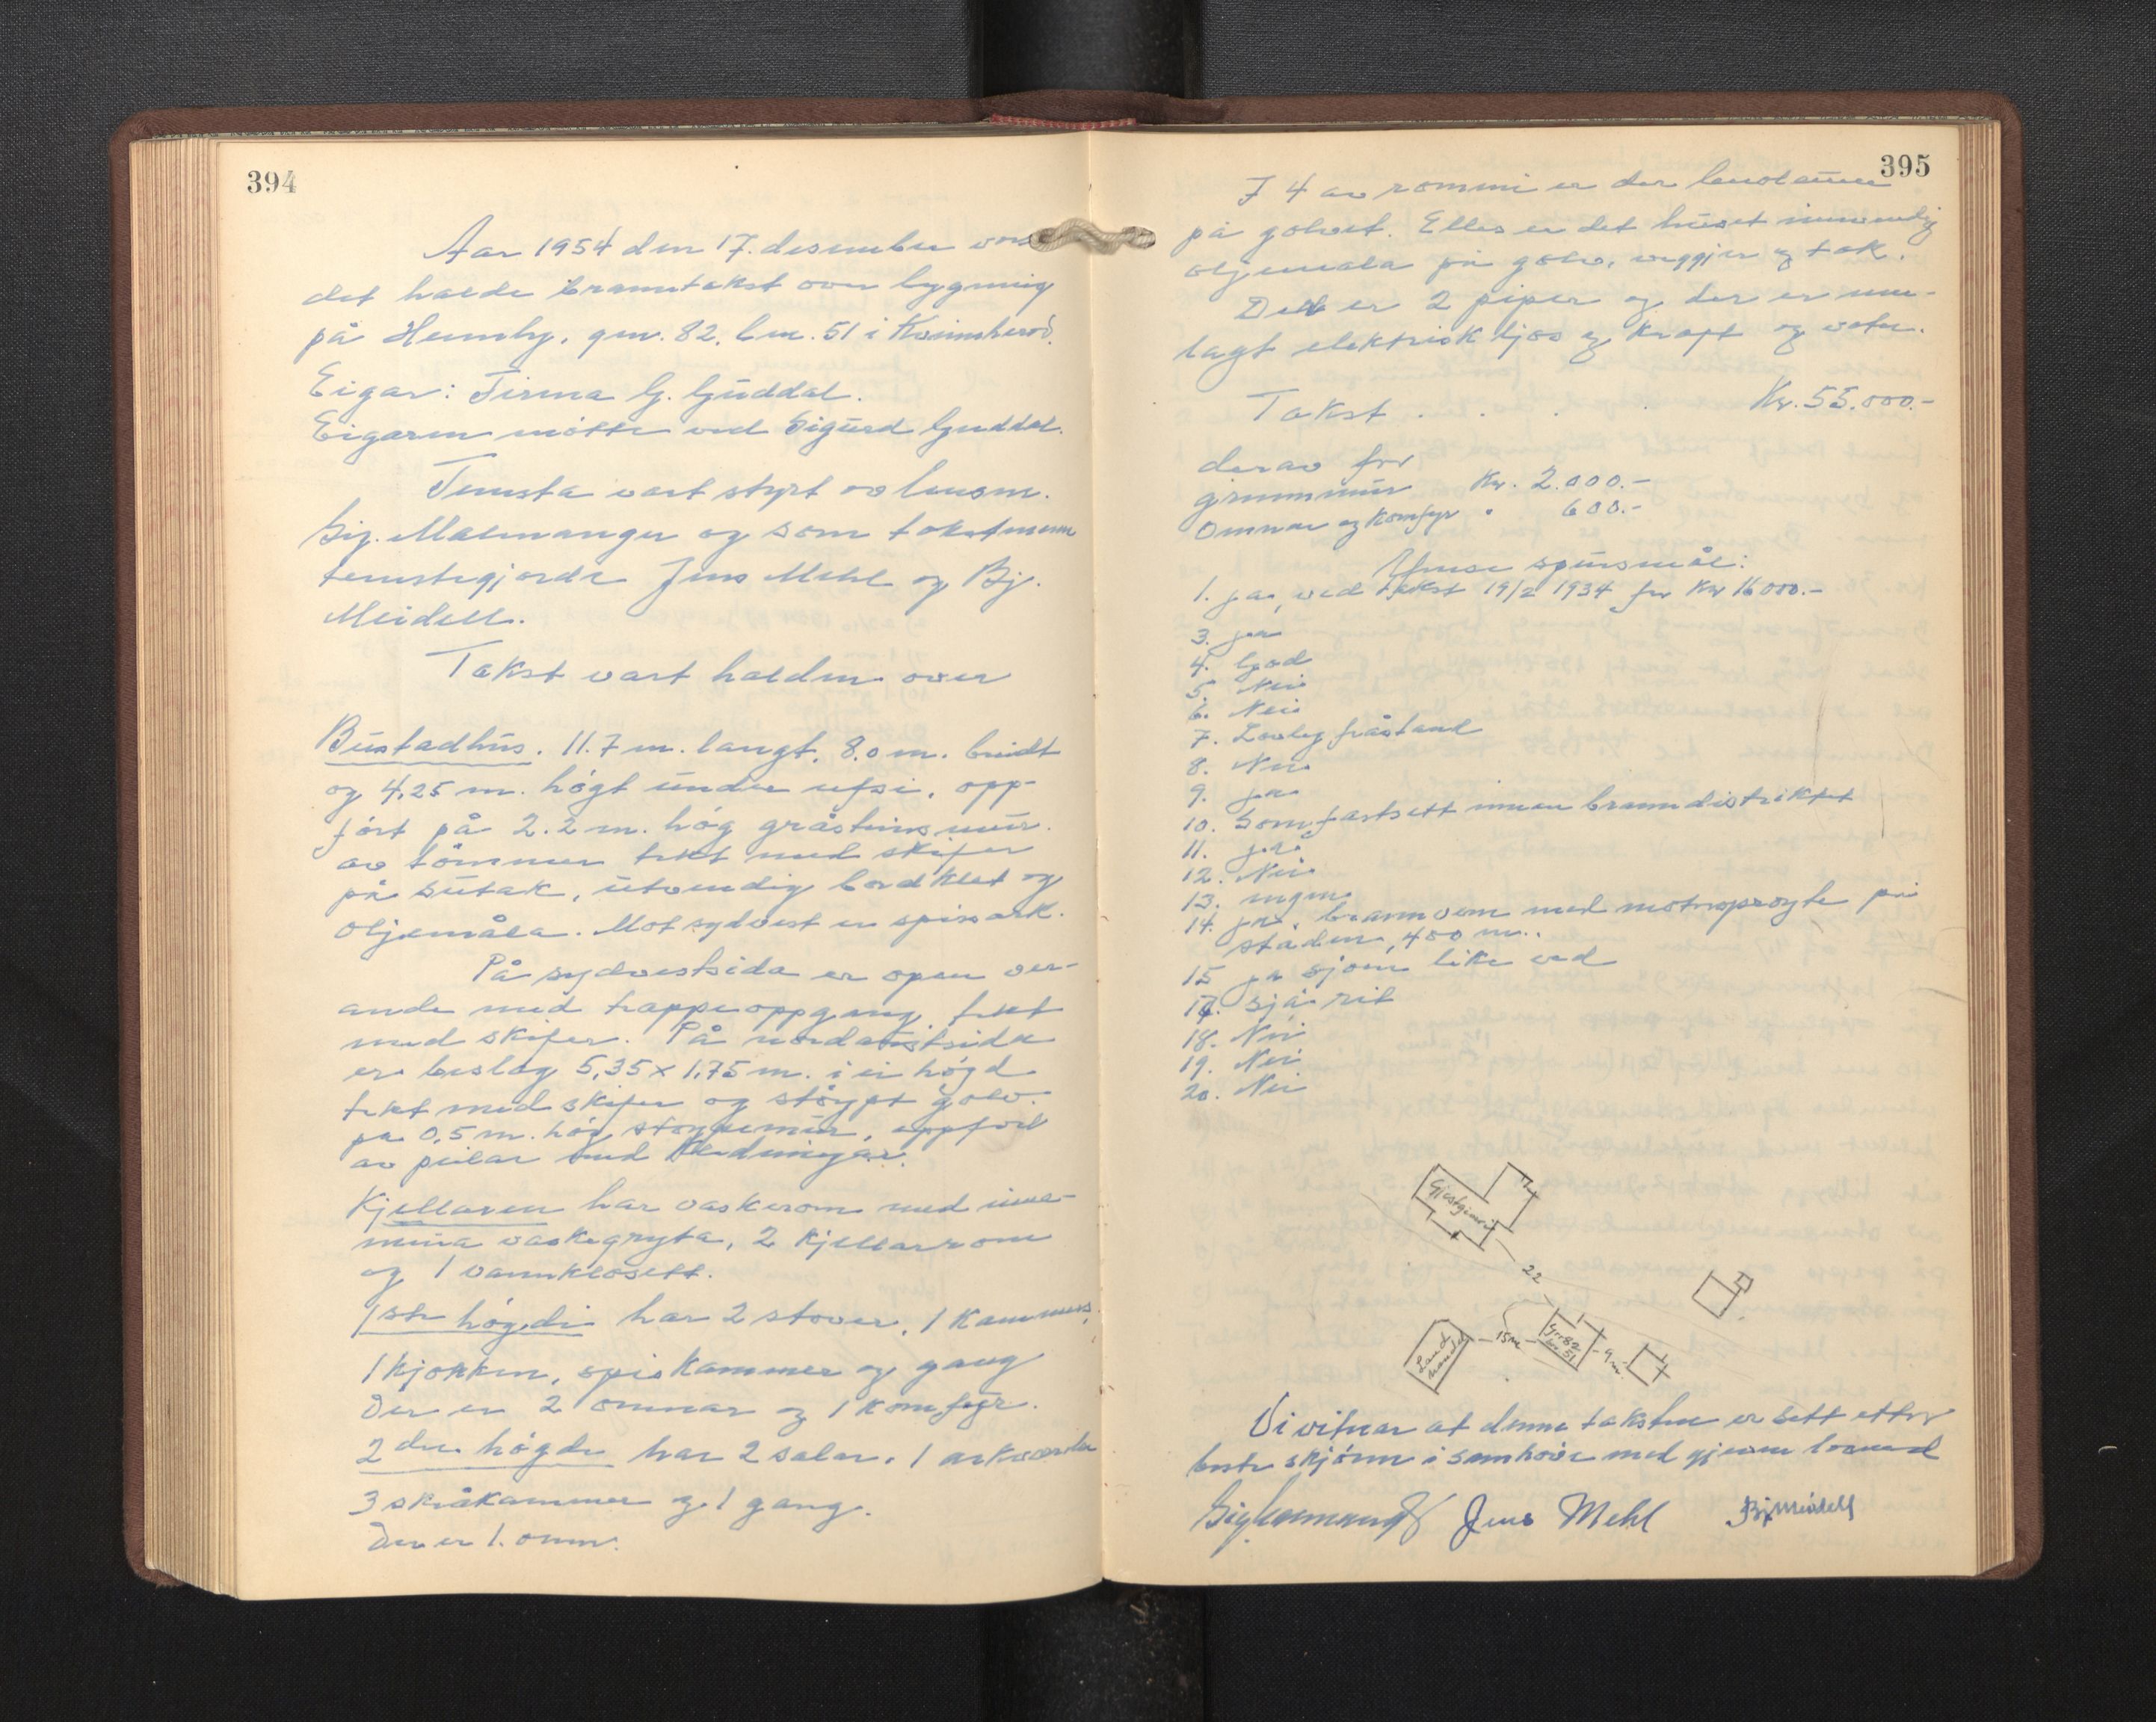 394
Aar 1954 den 17. desember vart
det halde branntakst over bygning
på Heimly, gnr. 82, bnr. 51 i Kvinnherad.
Eigar: Firma G. Guddal.
Eigaren møtte ved Sigurd Guddal.
Tenesta vart styrt av lensm.
Sig. Malmanger og som takstmenn
tenestegjorde Jens Mehl og Bj.
Meidell.
Takst vart halden over
Bustadhus. 11.7 m. langt, 8.0 m. breidt
og 4,25 m. høgt under ufsi, opp-
ført på 2.2 m. høg gråsteinsmur
av tømmer tekt med skifer
på sutak, utvendig bordklet og
oljemåla. Mot sydvest er spissark.
På sydvestsida er open ver-
anda med trappeoppgang tekt
med skifer. På nordaustsida
er beslag 5,35 x 1,75 m. i ei høgd
tekt med skifer og støypt golv
på 0,5 m. høg støypemur, oppført
av peilar med kledningar.
Kjellaren har vaskerom med inne-
mura vaskegryta, 2 kjellarrom
og 1 vannklosett.
1ste høgdi har 2 stover, 1 kammers,
1 kjøkken, spiskammer og gang
Der er 2 omnar og 1 komfyr.
2dre høgde har 2 salar, 1 arkværelse
3 skråkammer og 1 gang.
Der er 1. omn.
395
I 4 av rommi er der linoleum
på golvet. Elles er det huset innvendig
oljemala på golv, veggjer og tak.
Det er 2 piper og der er inn-
lagt elektrisk ljos og kraft og vatn.
Takst . . . . Kr. 55.000.-
derav for
grunnmur Kr. 2.000.-
Omnar og komfyr " 600.-
Ymse spursmål:
1. ja, ved takst 19/2 1934 for Kr 16000.-
3. ja
4. God
5. Nei
6. Nei
7. Lovleg fråstand
8. Nei
9. ja
10. Som fastsett innan branndistriktet
11. ja
12. Nei
13. ingen
14. ja, brannvern med motorsprøyte på
staden, 400 m..
15 ja sjøen like ved
17. sjå rit
18. Nei
19. Nei
20. Nei
Gjestgiveri
22
Land
handel
-15m-
Gnr 82
bnr 51
-9m-
Vi vitnar at denne taksten er sett etter
beste skjønn i samhøve med gjevne
Jens Mehl Bj Meidell